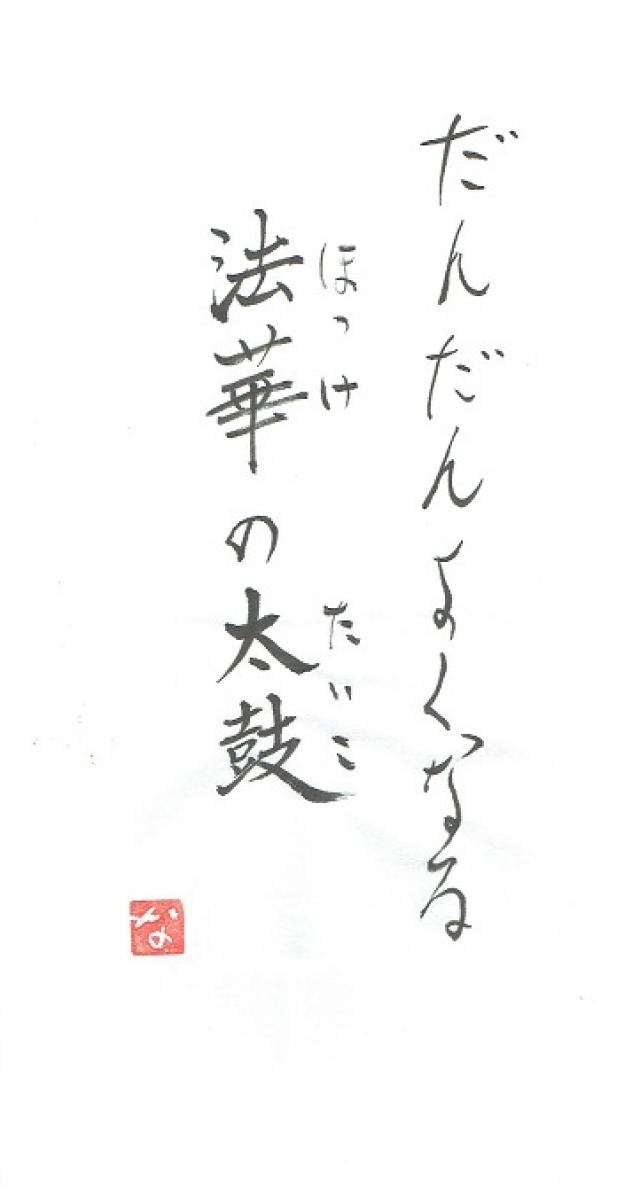 だんだんよくなる
ほっけ たいこ
法華の太鼓
な